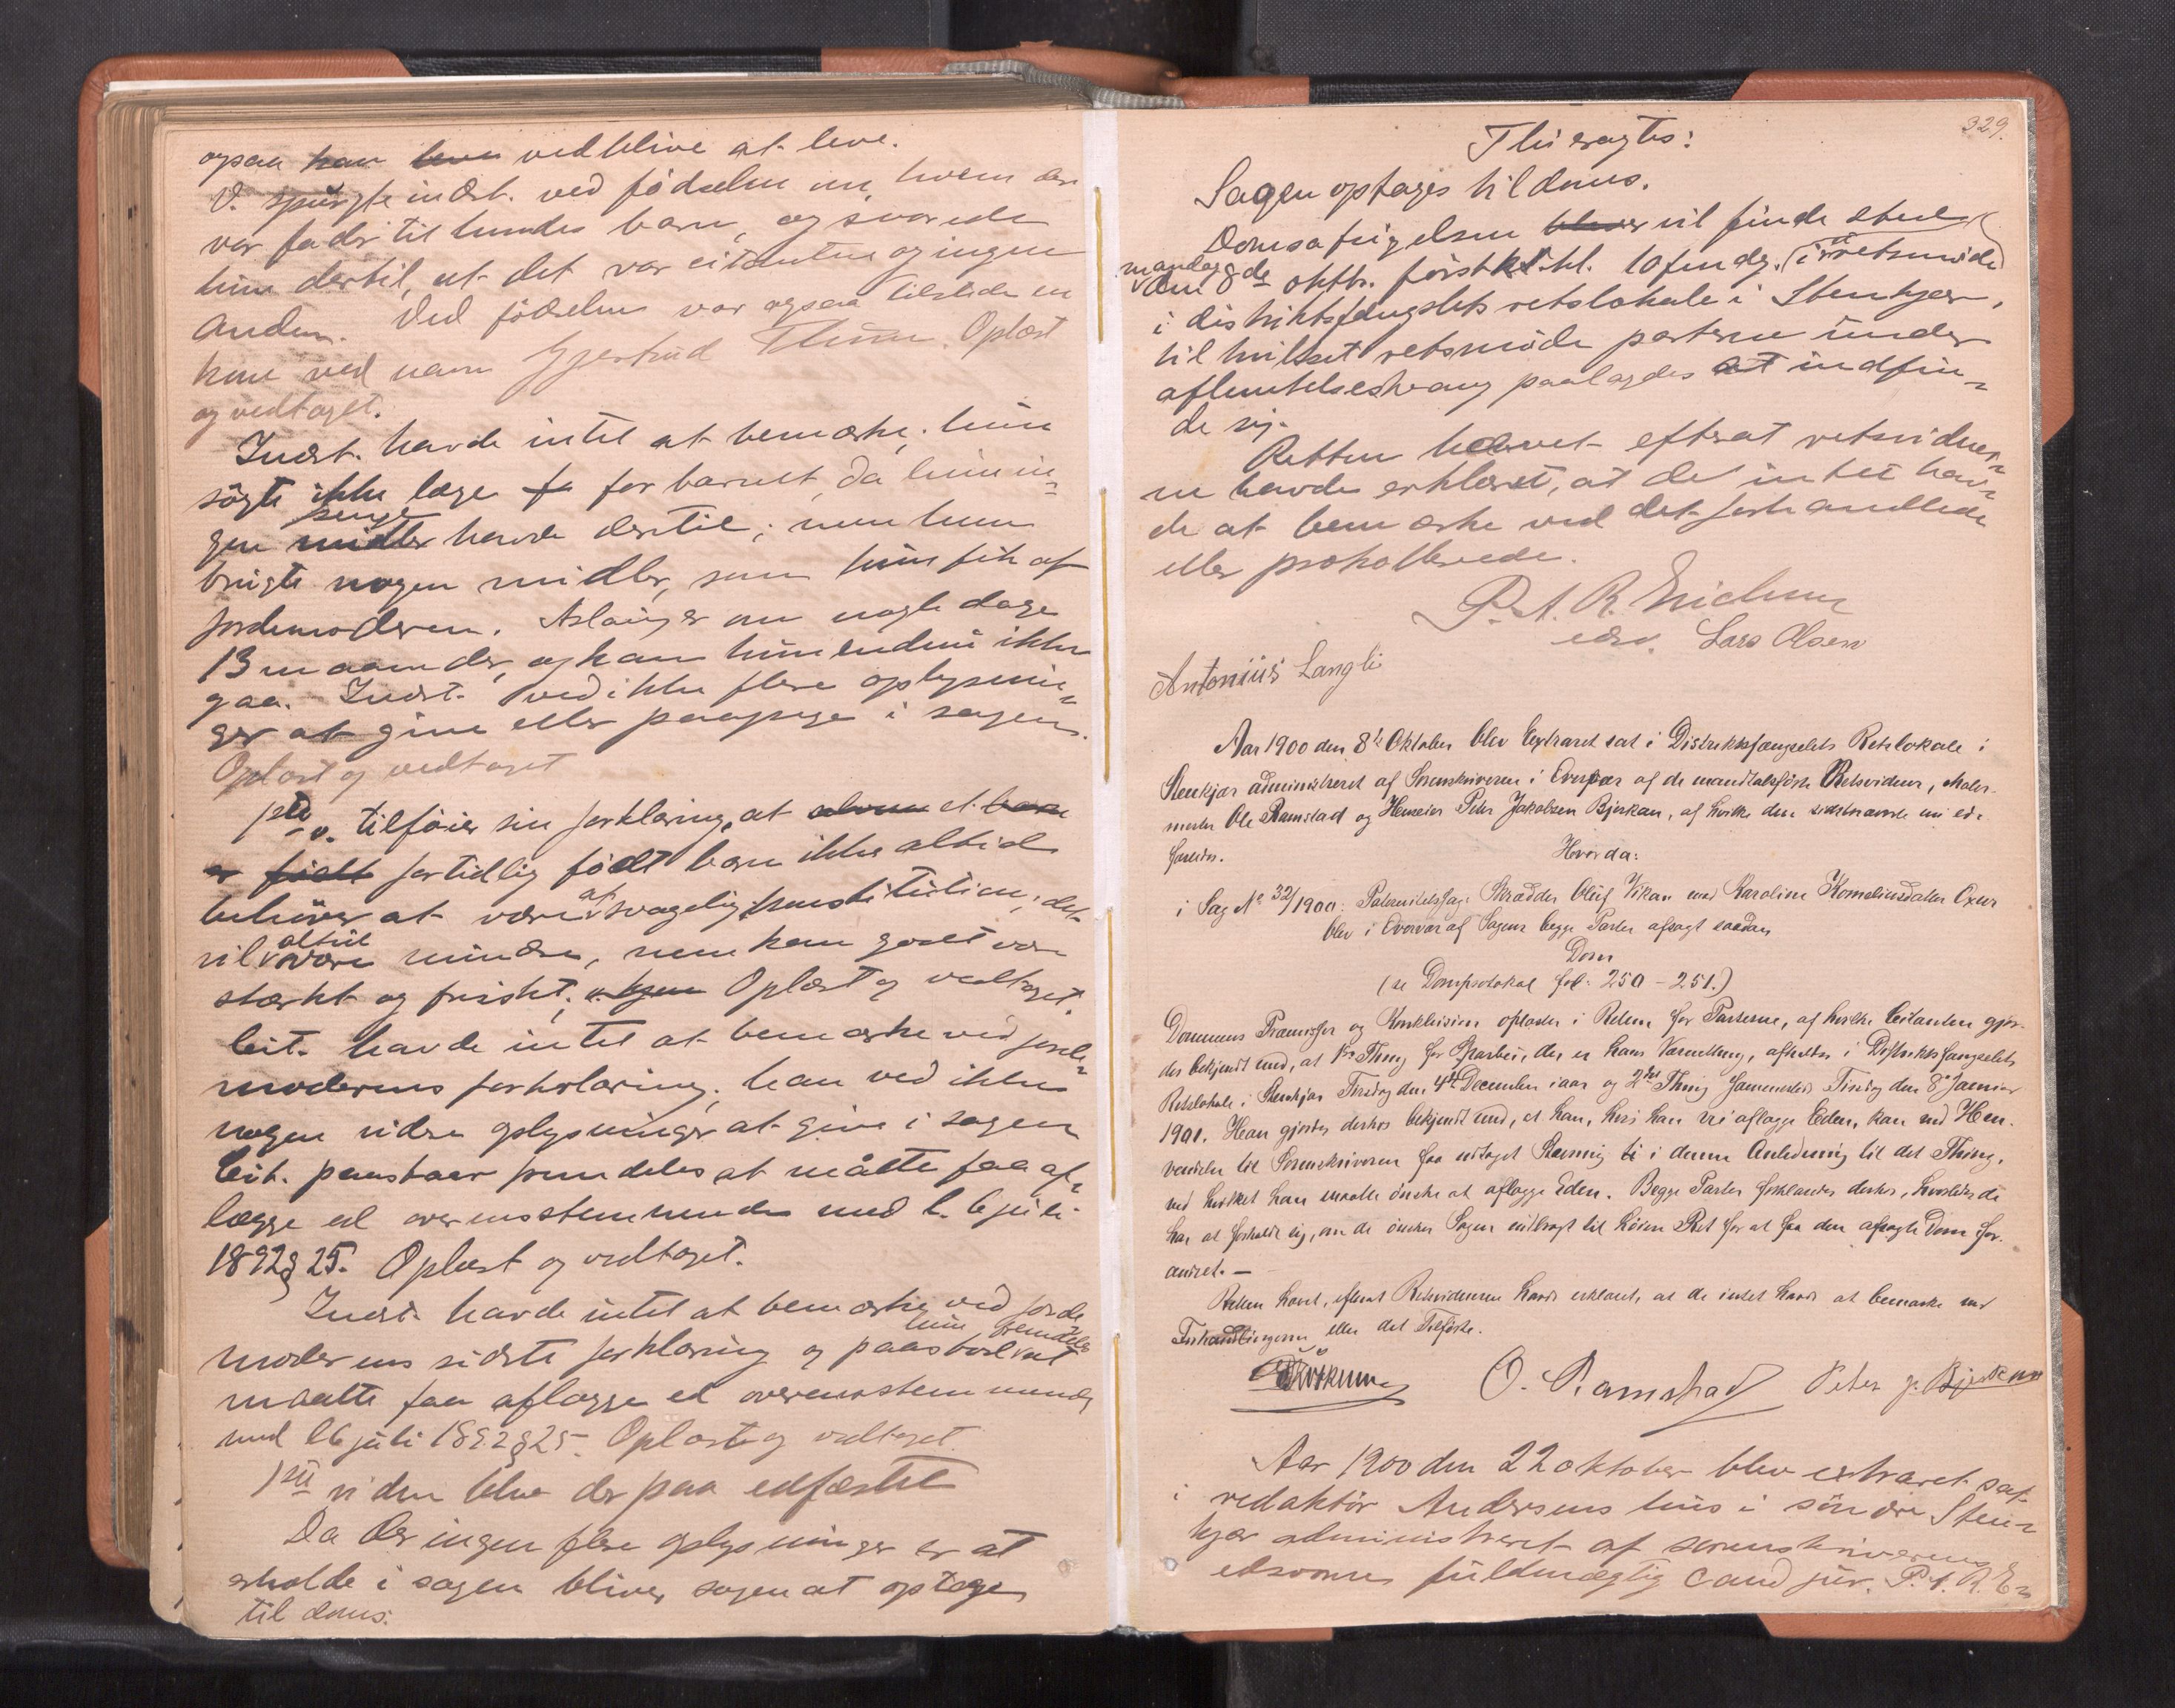 ogsaa kan leve vedblive at leve.
V. spurgte indst. ved fødselen om, hvem der
var fader til hendes barn, og svarede
hun dertil, at det var citanten og ingen
anden. Ved fødselen var ogsaa tilstede en
kone ved navn Gjertrud. Oplæst
og vedtaget.
Indst. havde intet at bemærke; hun
søgte ikke læge f for barnet, da hun in-
gen midler penge havde dertil; men hun
brugte nogen midler, som hun fik af
jordemoderen. Aslaug er nu nogle dage
13 maaneder, og kan hun endnu ikke
gaa. Indst. ved ikke flere oplysnin-
ger at give eller paapege i sagen.
Oplæst og vedtaget
1ste v. tilføier sin forklaring, at et barn
er født fortidlig født barn ikke altid
behøver at være af svagelig konstitution; det
vil altid være mindre, men kan godt være
stærkt og friskt; Oplæst og vedtaget.
Cit. havde intet at bemærke ved jorde-
moderens forklaring; han ved ikke
nogen videre oplysninger at give i sagen
Cit. paastaar fremdeles at måtte faa af-
lægge ed overensstemmende med l. 6 juli
1892 § 25. Oplæst og vedtaget.
Indst. havde intet at bemærke ved jorde
moderens sidste forklaring og paastod hun fremdeles at
maatte faa aflægge ed overensstemmende
med l 6 juli 1892 § 25. Oplæst og vedtaget.
1ste vidne blev derpaa edfæstet
Da der ingen flere oplysninger er at
erholde i sagen bliver sagen at optage
til doms.
329.
Thi eragtes:
Sagen optages til doms.
Domsafsigelsen bliver vil finde sted
mandag den 8de oktbr. førstk. kl. 10 fmdg. i retsmøde
i distriktsfængslets retslokale i Stenkjær,
til hvilket retsmøde parterne under
afhentelsestvang paalagdes at indfin-
de sig.
Retten hævet efterat retsvidner-
ne havde erklæret, at de intet hav-
de at bemærke ved det forhandlede
eller protokollerede.
P. A. R. Erichsen
edsv. Lars Olsen
Antonius Langli
Aar 1900 den 8de Oktober blev Extraret sat i Distriktsfængselets Retslokale i
Stenkjær administreret af Sorenskriveren i Overvær af de mandtalsførte Retsvidner, Maler-
mester Ole Ramstad og Henseier Peter Jakobsen Bjerkan, af hvilke den sidstnævnte nu ed-
fæstedes.
Hvorda:
i Sag No 32/1900: Paternitetssag: Skrædder Oluf Vikan mod Karoline Korneliusdatter Oxur
blev i Overvær af Sagens begge Parter afsagt saadan
Dom
(se Domsprotokol fol: 250 - 251.)
Dommens Præmisser og Konklusion oplæstes i Retten for Parterne, af hvilke Citanten gjor-
des bekjendt med, at 1ste Thing for Sparbu, der er hans Værnething, afholdes i Distriktsfængselets
Retslokale i Stenkjær Tirsdag den 4de December i aar og 2det Thing sammesteds Tirsdag den 8de Januar
1901. Han gjordes derhos bekjendt med, at han, hvis han vil aflægge Eden, kan ved Hen-
vendelse til Sorenskriveren faa udtaget Stævning ti i denne Anledning til det Thing,
ved hvilket han maatte ønske at aflægge Eden. Begge Parter forklaredes derhos, hvorledes de
har at forholde sig, om de ønsker Sagen indbragt til høiere Ret for at faa den afsagte Dom for-
andret. —
Retten hævet, efterat Retsvidnerne havde erklæret, at de intet havde at bemærke ved
Forhandlingerne eller det Tilførte.
O. Ramstad Peter J. Bjerkan
Aar 1900 den 22 oktober blev extraret sat
i redaktør Andersens hus i søndre Sten-
kjær administreret af sorenskriverens
edsvorne fuldmægtig cand. jur. P. A. R. E-